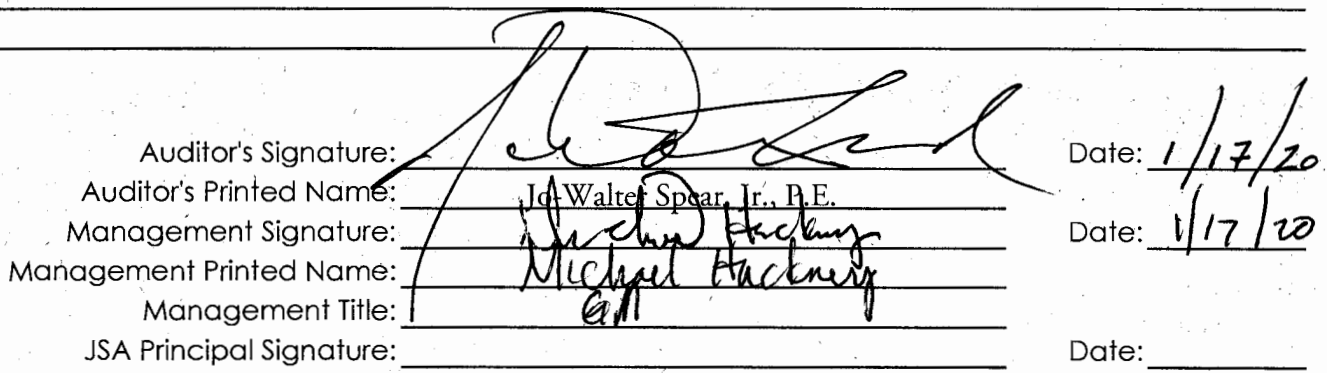 Auditor's Signature: Date: 1/17/20
Auditor's Printed Name: Jo-Walter Spear, Jr., P.E.
Management Signature: Michael Hackney Date: 1/17/20
Management Printed Name: Michael Hackney
Management Title: GM
JSA Principal Signature: Date: